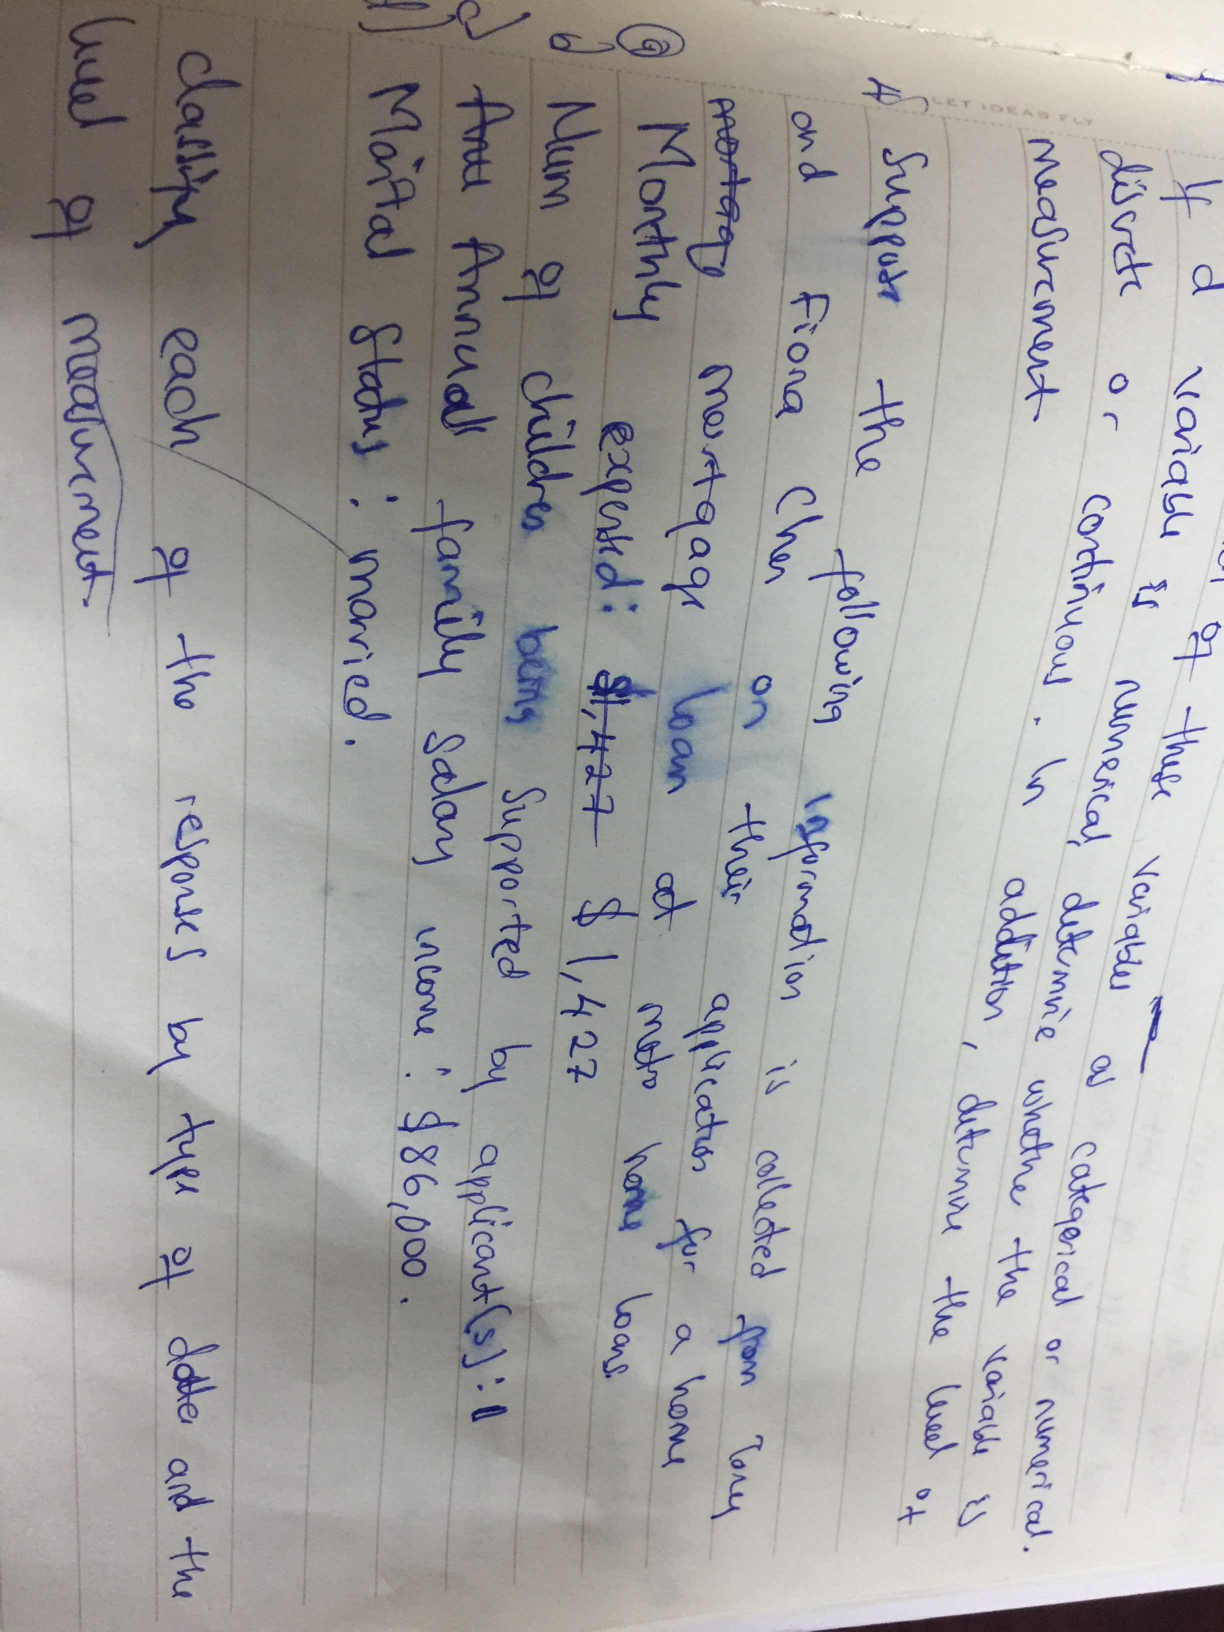 of these variables
If a variable is numerical, determine whether the variable is
as categorical or numerical.
discrete or continuous. In addition, determine the level of
measurement
LET IDEAS FLY
4) Suppose the following information is collected from Tony
and Fiona Chen on their application for a home
mortgage mortgage loan at metro home loans.
a) Monthly expensed: $1,427 $1,427
b) Num of children being supported by applicant(s): 1
c) Annu Annual family salary income: $86,000.
d) Marital Status: married.
classify each of the responses by type of data and the
level of measurement.